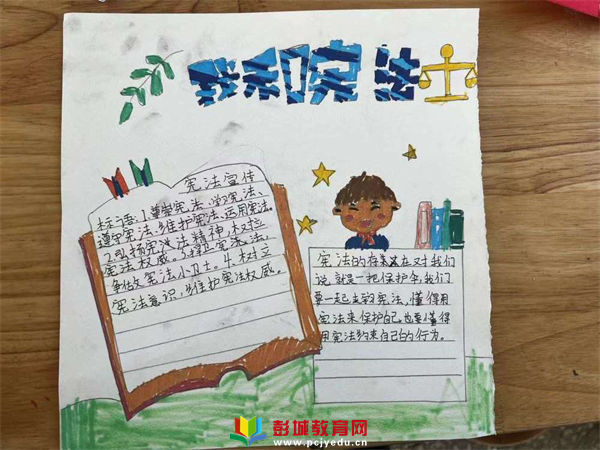 我和宪法
宪法宣传
标语:1.尊崇宪法、学习宪法、
遵守宪法、维护宪法、运用宪法。
2.弘扬宪法精神,树立
宪法权威。3.捍卫宪法,
争做宪法小卫士。4.树立
宪法意识,维护宪法权威。
宪法的存在对我们
说就是一把保护伞,我们
要一起宪法,懂得用
宪法来保护自己,也要懂得
用宪法约束自己的行为。
彭城教育网
www.pcjyedu.cn